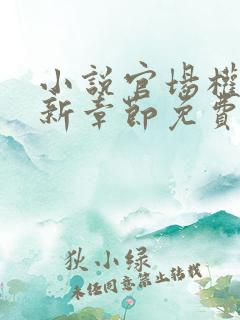 小說官場權
新章節免費
狄小绿
未经同意禁止转载